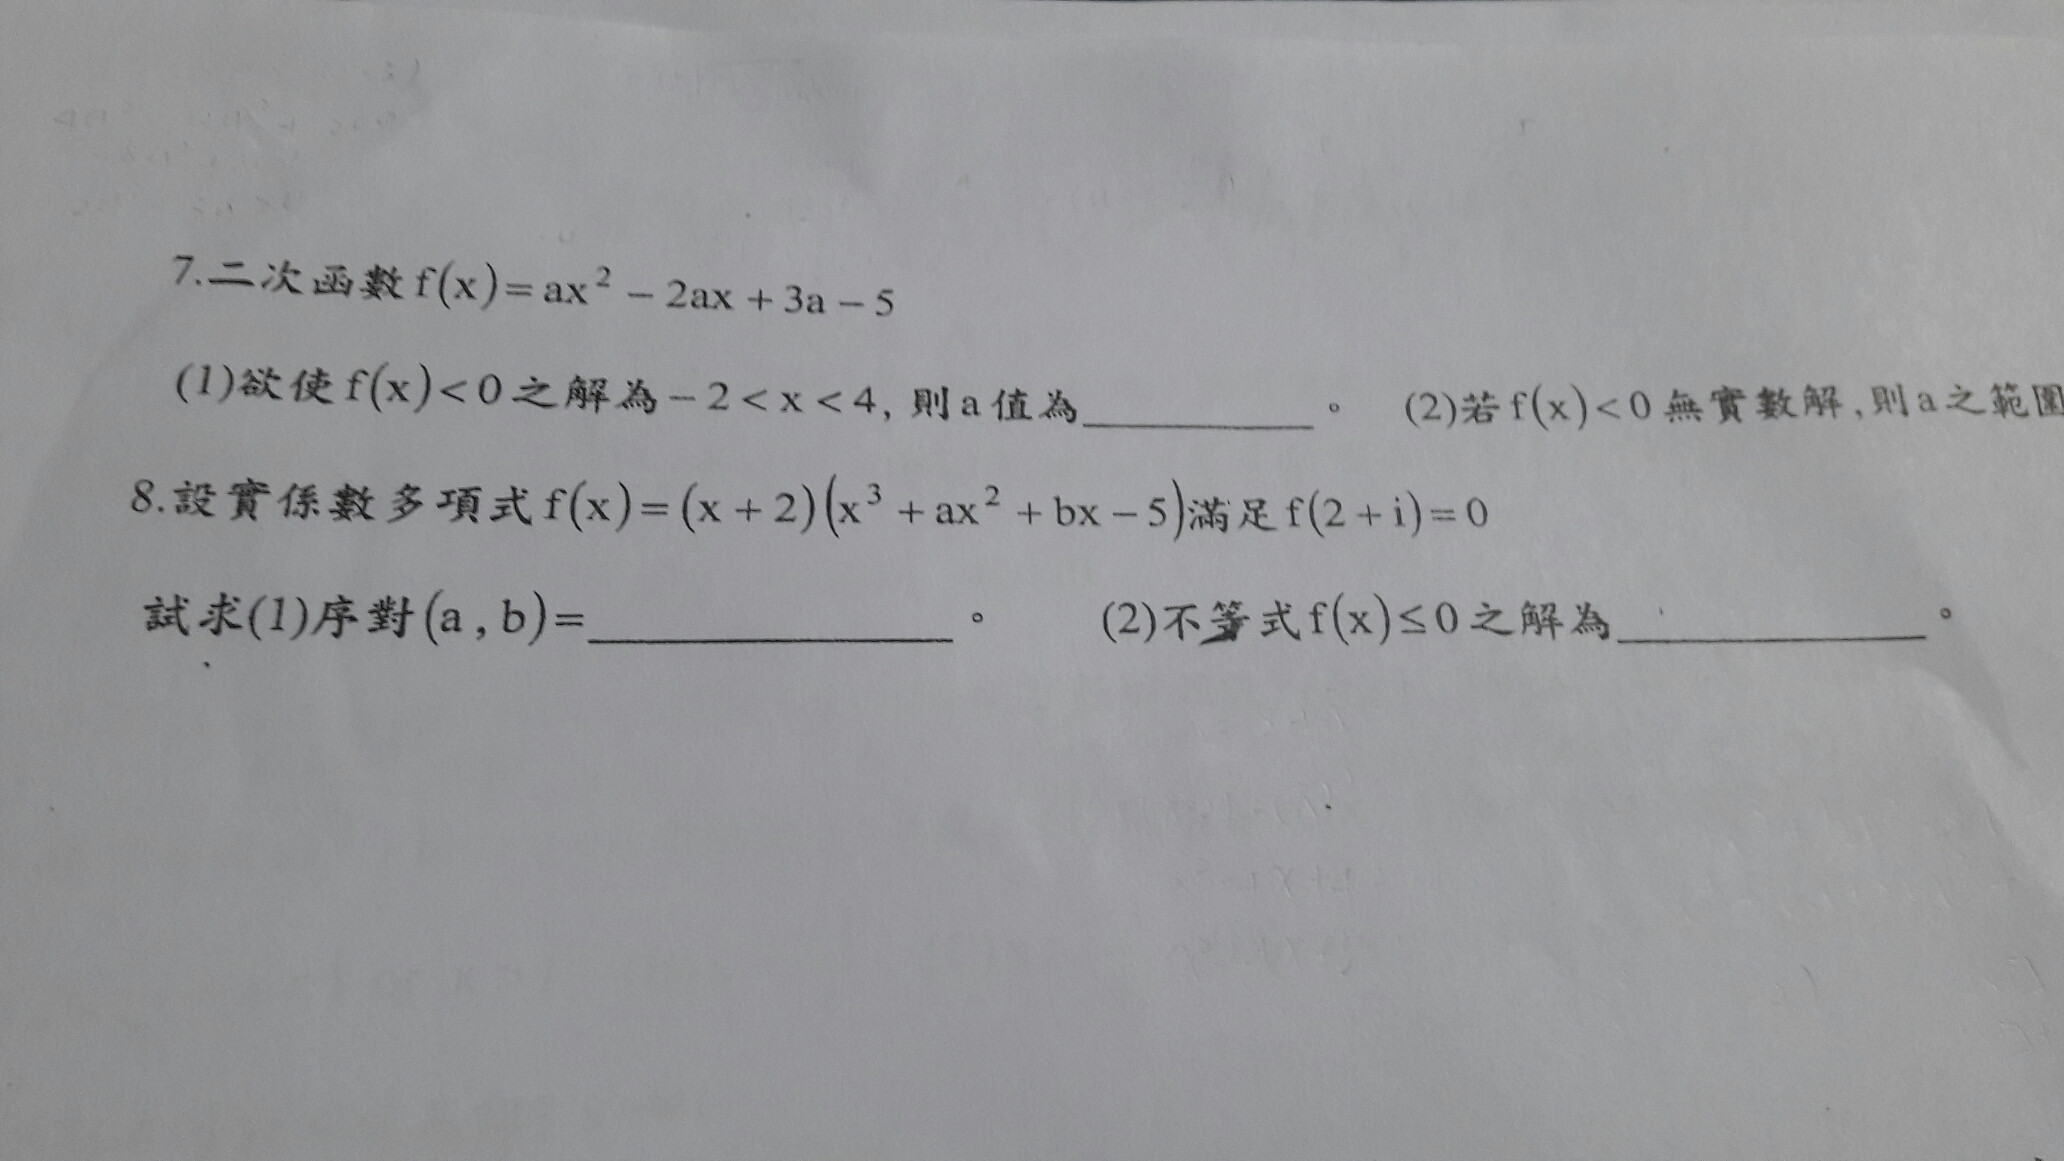 7.二次函數f(x)=ax²-2ax+3a-5
(1)欲使f(x)<0之解為-2<x<4,則a值為________。 (2)若f(x)<0無實數解,則a之範圍
8.設實係數多項式f(x)=(x+2)(x³+ax²+bx-5)滿足f(2+i)=0
試求(1)序對(a,b)=____________。 (2)不等式f(x)≤0之解為__________。